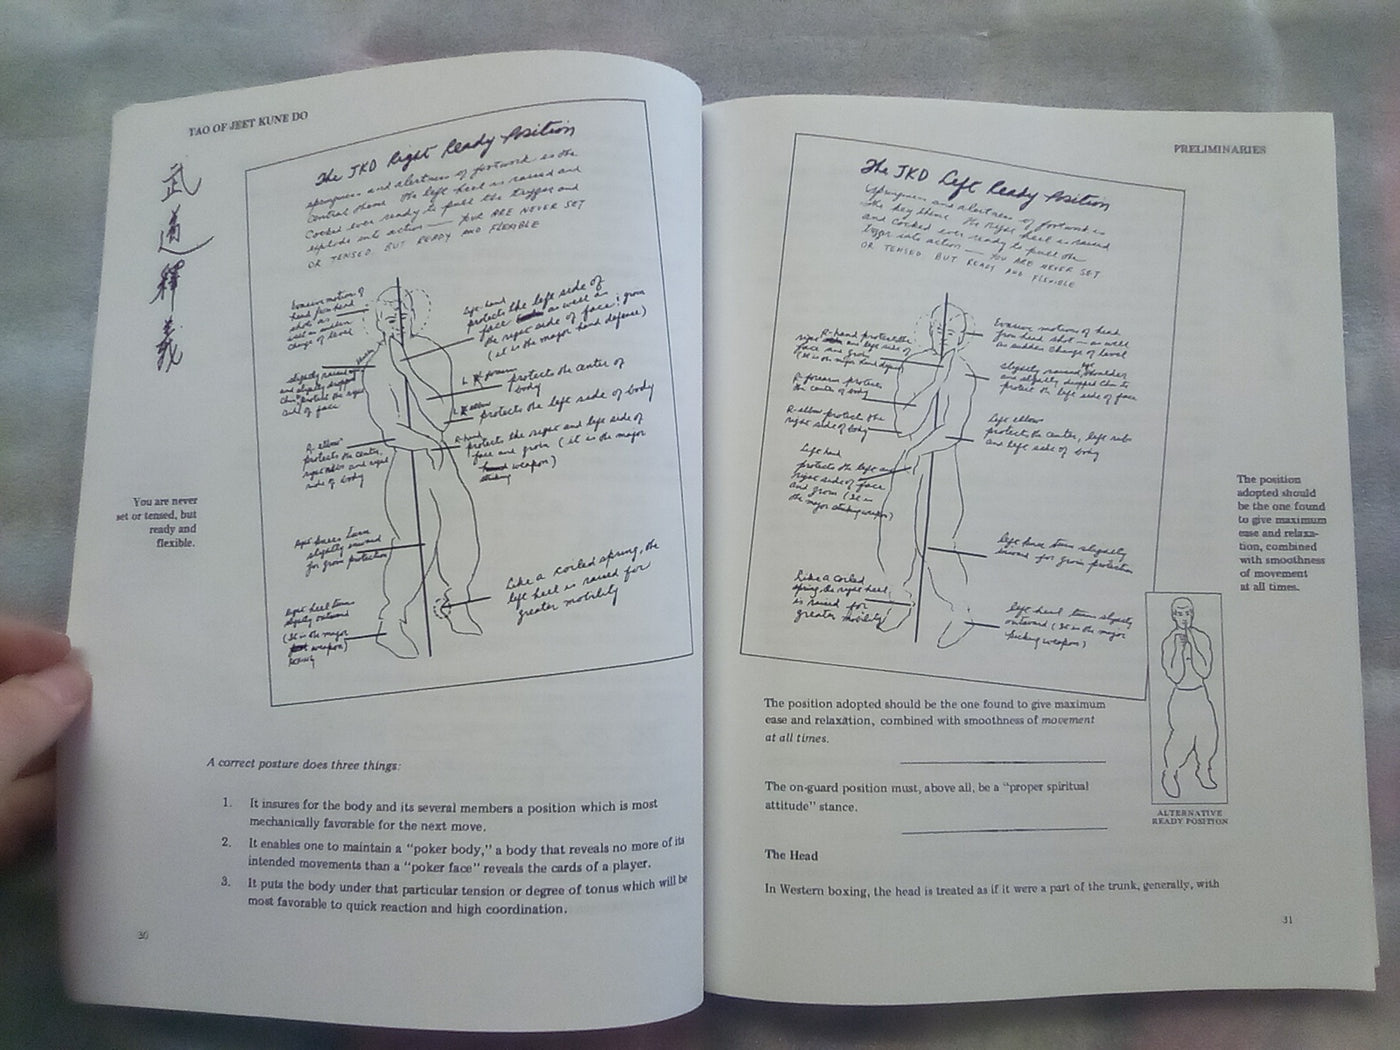 TAO OF JEET KUNE DO
武
道
釋
義
The JKD Right Ready Position
springness and alertness of footwork is the
central theme. The left heel is raised and
cocked ever ready to pull the trigger and
explode into action — YOUR ARE NEVER SET
OR TENSED, BUT READY AND FLEXIBLE
Evasive motion of
head from head
shots as
well as sudden
change of level
slightly raised
and slightly dropped
chin protect the right
side of face
R-elbow
protects the center,
right ribs and right
side of body
right knee turn
slightly inward
for groin protection
right heel turn
slightly outward
(It is the major
weapon)
left hand
protects the left side of
face as well as
the right side of face; groin
(it is the major hand defense)
L forearm protects the center of
body
L elbow protects the left side of body
R-hand
protects the right and left side of
face and groin (it is the major
striking weapon)
Like a coiled spring, the
left heel is raised for
greater mobility
You are never
set or tensed, but
ready and
flexible.
A correct posture does three things:
1. It insures for the body and its several members a position which is most
mechanically favorable for the next move.
2. It enables one to maintain a “poker body,” a body that reveals no more of its
intended movements than a “poker face” reveals the cards of a player.
3. It puts the body under that particular tension or degree of tonus which will be
most favorable to quick reaction and high coordination.
30
PRELIMINARIES
The JKD Left Ready Position
springness and alertness of footwork is
the key theme. The right heel is raised
and cocked ever ready to pull the
trigger into action — YOU ARE NEVER SET
OR TENSED, BUT READY AND FLEXIBLE
R-hand protects the
right and left side of
face and groin
(It is the major hand defense)
R-forearm protects
the center of body
R-elbow protects the
right side of body
Left hand
protects the left and
right side of face
and groin (It is
the major striking weapon)
Like a coiled
spring the right heel
is raised for
greater mobility
Evasive motions of head
from head shot — as well
as sudden change of level
slightly raised shoulder
and slightly dropped chin to
protect the left side of face
Left elbow
protects the center, left ribs
and left side of body
left knee turn slightly
inward for groin protection
left heel turn slightly
outward (It is the major
kicking weapon)
The position
adopted should
be the one found
to give maximum
ease and relaxa-
tion, combined
with smoothness
of movement
at all times.
ALTERNATIVE
READY POSITION
The position adopted should be the one found to give maximum
ease and relaxation, combined with smoothness of movement
at all times.
The on-guard position must, above all, be a “proper spiritual
attitude” stance.
The Head
In Western boxing, the head is treated as if it were a part of the trunk, generally, with
31